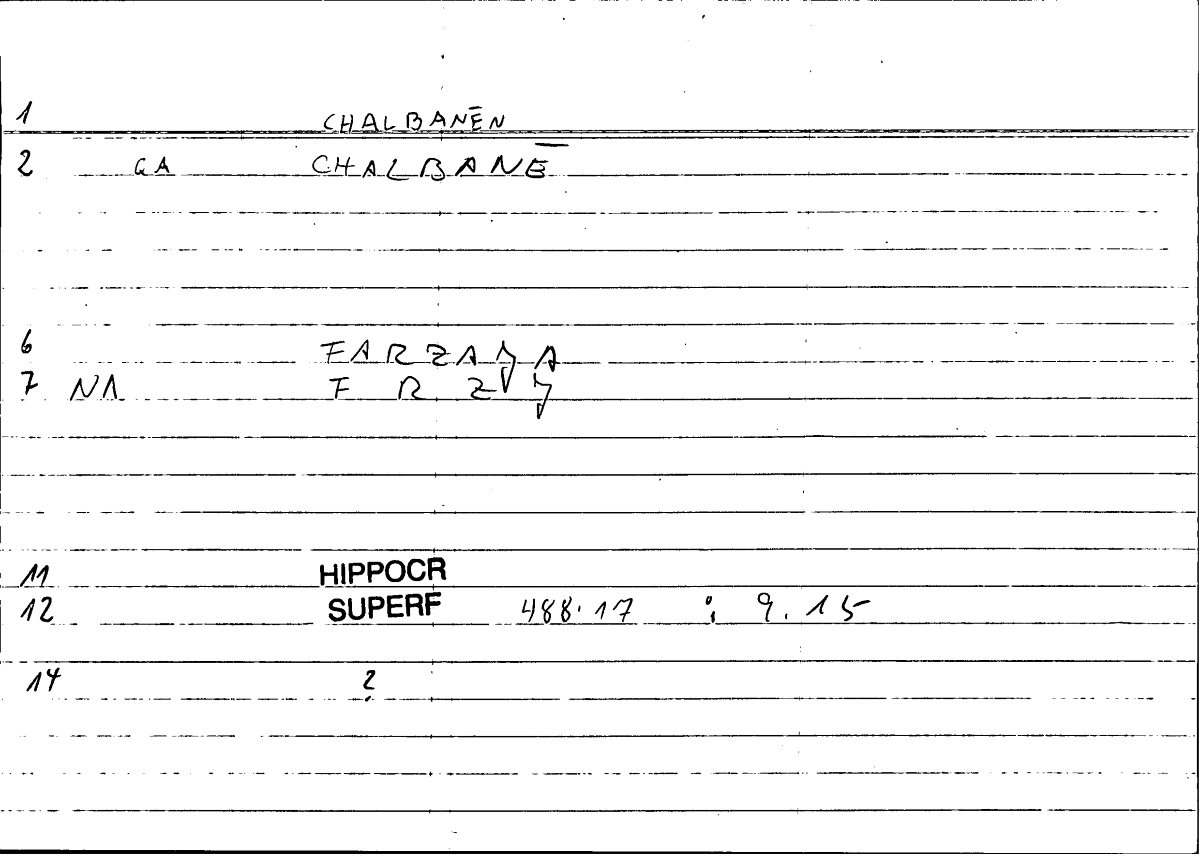 1 CHALBANĒN
2 GA CHALBANĒ
6 FARZAǦA
7 N1 F R Z Ǧ
11 HIPPOCR
12 SUPERF 488.17 ; 9.15
14 ?